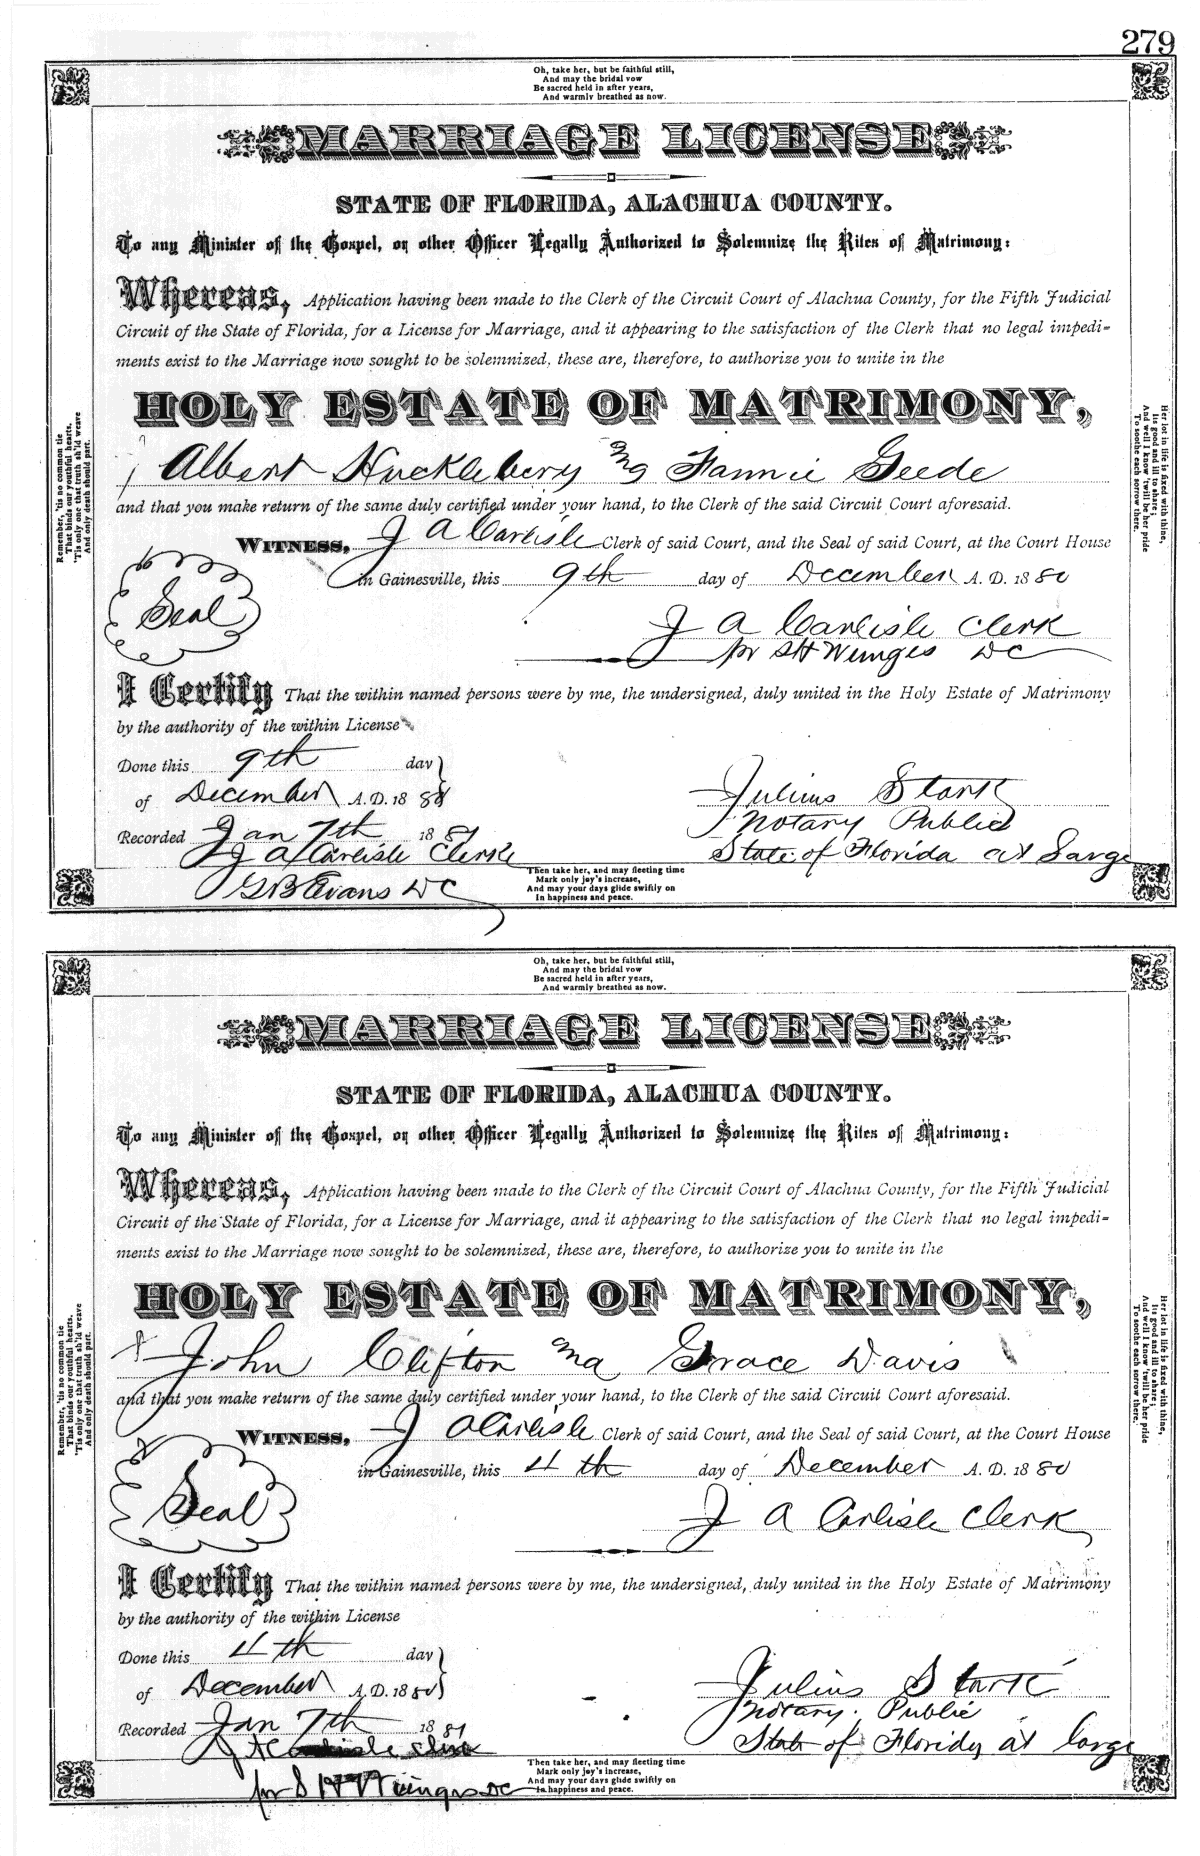 279
Oh, take her, but be faithful still,
And may the bridal vow
Be sacred held in after years,
And warmly breathed as now.
MARRIAGE LICENSE
STATE OF FLORIDA, ALACHUA COUNTY.
To any Minister of the Gospel, or other Officer Legally Authorized to Solemnize the Rites of Matrimony:
Whereas, Application having been made to the Clerk of the Circuit Court of Alachua County, for the Fifth Judicial
Circuit of the State of Florida, for a License for Marriage, and it appearing to the satisfaction of the Clerk that no legal impedi-
ments exist to the Marriage now sought to be solemnized, these are, therefore, to authorize you to unite in the
HOLY ESTATE OF MATRIMONY,
Albert Huckleberry and Fannie Geede
and that you make return of the same duly certified under your hand, to the Clerk of the said Circuit Court aforesaid.
WITNESS, J A Carlisle Clerk of said Court, and the Seal of said Court, at the Court House
in Gainesville, this 9th day of December A. D. 1880
Seal
J A Carlisle Clerk
pr S H Wienges DC
I Certify That the within named persons were by me, the undersigned, duly united in the Holy Estate of Matrimony
by the authority of the within License
Done this 9th day
of December A. D. 1880
Recorded Jan 7th 1881
J A Carlisle Clerk
G B Evans DC
Julius Stark
Notary Public
State of Florida at Large
Then take her, and may fleeting time
Mark only joy's increase,
And may your days glide swiftly on
In happiness and peace.
Remember, 'tis no common tie
That binds our youthful hearts,
'Tis only one that truth sh'ld weave
And only death should part.
Her lot in life is fixed with thine,
Its good and ill to share;
And well I know 'twill be her pride
To soothe each sorrow there.
Oh, take her, but be faithful still,
And may the bridal vow
Be sacred held in after years,
And warmly breathed as now.
MARRIAGE LICENSE
STATE OF FLORIDA, ALACHUA COUNTY.
To any Minister of the Gospel, or other Officer Legally Authorized to Solemnize the Rites of Matrimony:
Whereas, Application having been made to the Clerk of the Circuit Court of Alachua County, for the Fifth Judicial
Circuit of the State of Florida, for a License for Marriage, and it appearing to the satisfaction of the Clerk that no legal impedi-
ments exist to the Marriage now sought to be solemnized, these are, therefore, to authorize you to unite in the
HOLY ESTATE OF MATRIMONY,
John Clifton and Grace Davis
and that you make return of the same duly certified under your hand, to the Clerk of the said Circuit Court aforesaid.
WITNESS, J A Carlisle Clerk of said Court, and the Seal of said Court, at the Court House
in Gainesville, this 4th day of December A. D. 1880
Seal
J A Carlisle Clerk
I Certify That the within named persons were by me, the undersigned, duly united in the Holy Estate of Matrimony
by the authority of the within License
Done this 4th day
of December A. D. 1880
Recorded Jan 7th 1881
J A Carlisle Clerk
per S H Wienges DC
Julius Stark
Notary Public
State of Florida at large
Then take her, and may fleeting time
Mark only joy's increase,
And may your days glide swiftly on
In happiness and peace.
Remember, 'tis no common tie
That binds our youthful hearts,
'Tis only one that truth sh'ld weave
And only death should part.
Her lot in life is fixed with thine,
Its good and ill to share;
And well I know 'twill be her pride
To soothe each sorrow there.